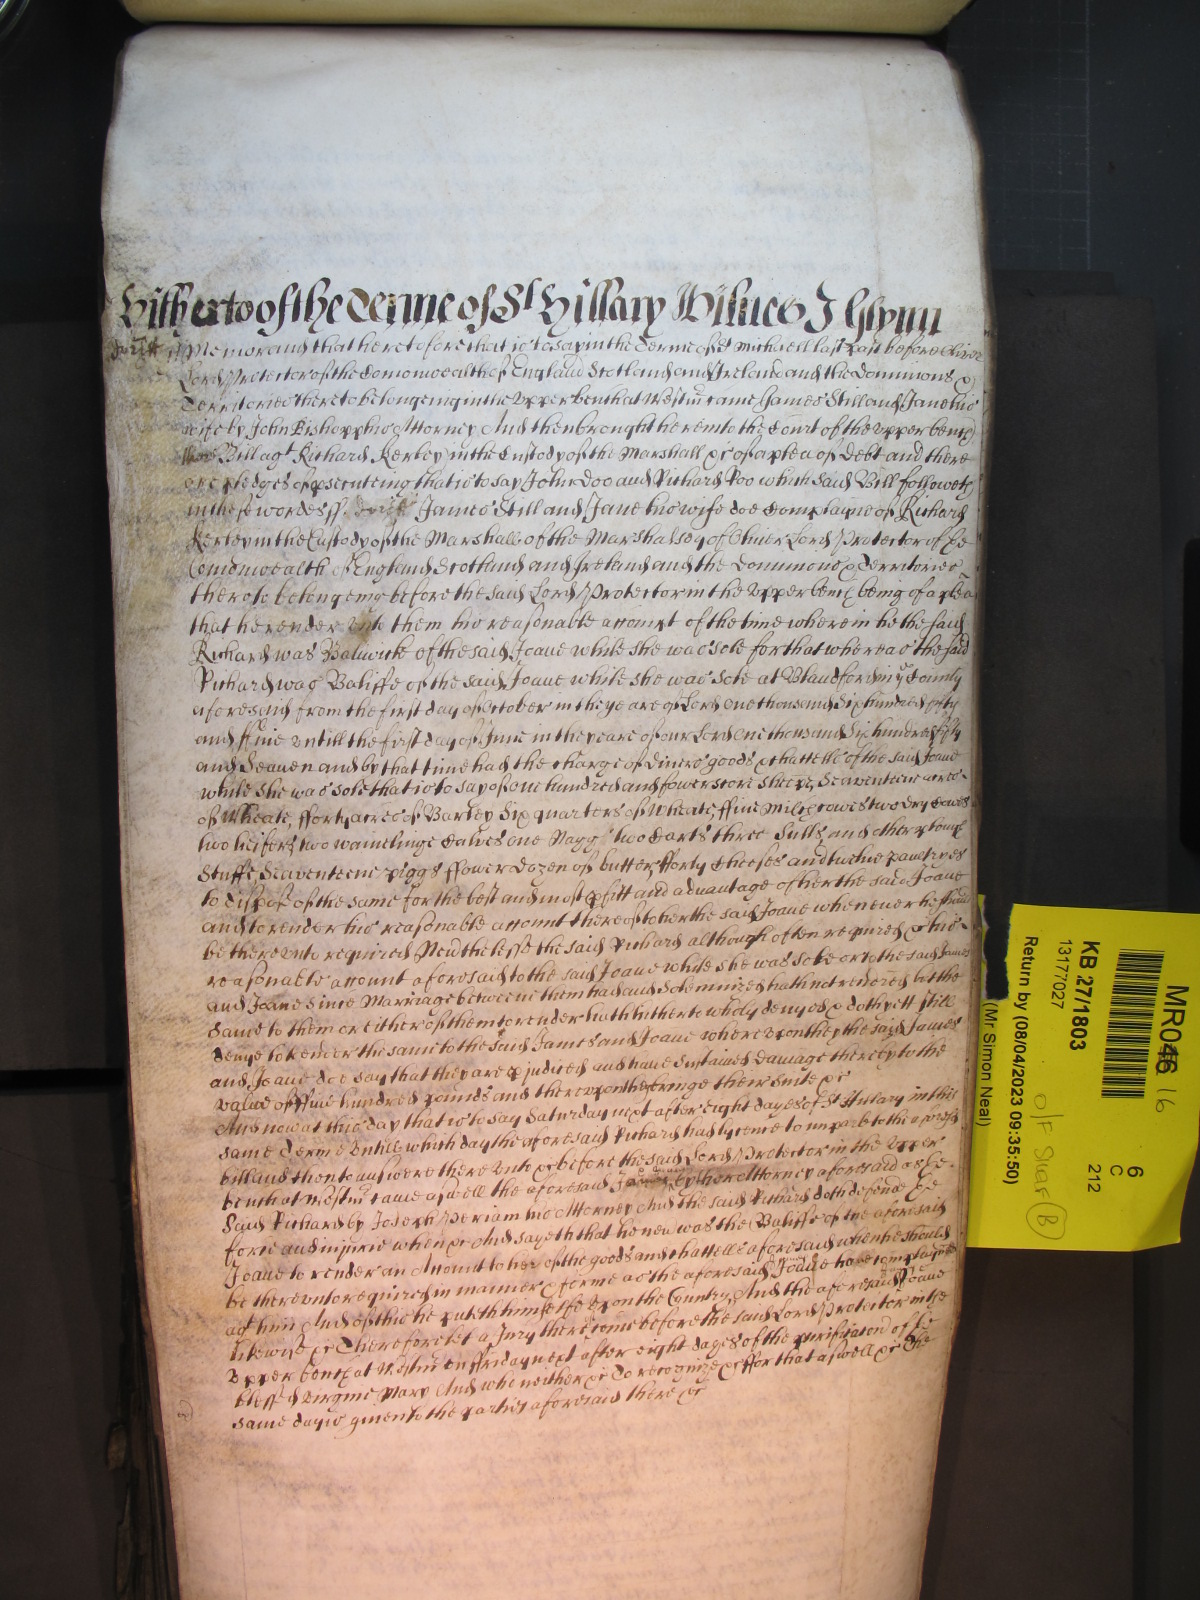 Hitherto of the Terme of St Hillary Witnes J Glynn
Memorand that heretofore that is to say in the Terme of St Michaell last past before Oliver
Lord Protector of the Comonwealth of England Scotland and Ireland and the Dominions &
Territories thereto belonging in the upper bench at Westm came James Still and Jane his
wife by John Bishopp his Attorney And then brought here into the Court of the upper bench
their Bill agt Richard Kerley in the Custody of the Marshall &c of a plea of Debt and there
are pledges of prosecuteing that is to say John Doo and Richard Roo which said Bill followeth
in these wordes ss James Still and Jane his wife doe complayne of Richard
Kerley in the Custody of the Marshall of the Marshalsey of Oliver Lord Protector of the
Comonwealth of England Scotland and Ireland and the Dominions & Territories
thereto belonging before the said Lord Protector in the upper bench being of a plea
that he render unto them his reasonable accompt of the time wherein he the said
Richard was Baliwicke of the said Joane while she was sole for that whereas the said
Richard was Baliffe of the said Joane while she was sole at Blandford in ye County
aforesaid from the first day of October in the yeare of Lord one thousand six hundred fifty
and ffive untill the first day of June in the yeare of our Lord one thousand six hundred fifty
and Seaven and by that time had the charge of divers goods & chattells of the said Joane
while she was sole that is to say of one hundred and fowerscore sheepe, Seaventeene acres
of Wheate, fforty acres of Barley Six quarters of Wheate, ffive Milch cowes two dry Cowes
two heifers, two wainelinge Calves one Nagg two Carts three Sulls and other plough
Stuffe, Seaventeene piggs ffower Dozen of butter, fforty Cheeses and twelve
to dispose of the same for the best and most pfitt and advantage of her the said Joane
and to render his reasonable account thereof to her the said Joane whenever he should
be thereunto required Nevthelesse the said Richard although often required & his
reasonable accont aforesaid to the said Joane while she was sole or to the said James
and Joane since Marriage betweene them had and solemnized hath not rendered but the
same to them or either of them to render hath hitherto wholy denyed & doth yett still
denye to render the same to the said James and Joane whereupon they the said James
and Joane doe say that they are prejudiced and have sustained Damage thereby to the
value of ffive hundred pounds and thereupon they bringe their suite &c
And now at this day that is to say Saturday next after eight dayes of St Hillary in this
same Terme untill which day the aforesaid Richard had lycence to imparle to the aforesd
bill and then to answere thereunto &c before the said Lord Protector in the upper
bench at Westm came aswell the aforesaid by their Attorney aforesaid as the
said Richard by Joseph Periam his Attorney And the said Richard doth defend the
force and injurie when &c And sayeth that he nev was the Baliffe of the aforesaid
Joane to render an Account to her of the goods and chattells aforesaid when he should
be thereunto required in manner & forme as the aforesaid Joane have complayned
agt him And of this he putteth himselfe upon the Country, And the aforesaid Joane
likewise &c Therefore let a Jury thereof come before the said Lord Protector in the
upper bench at Westm on ffriday next after eight dayes of the purificacon of the
blessed virgine Mary And who neither &c To recognize &c ffor that aswell &c The
same day is given to the parties aforesaid there &c
MR046 16
KB 27/1803
13177027
Return by (08/04/2023 09:35:50)
(Mr Simon Neal)
6
C
212
O/F Shar B